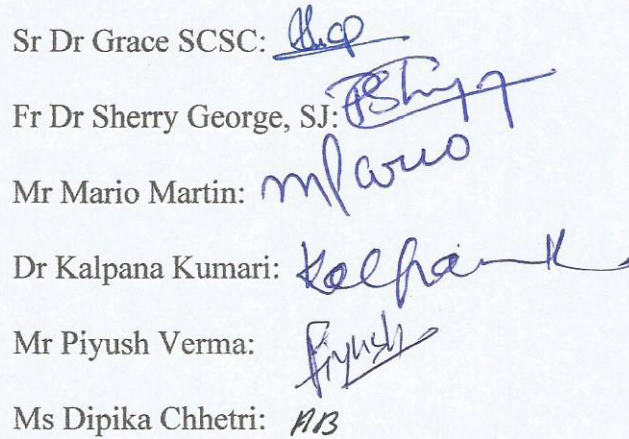 Sr Dr Grace SCSC:
Fr Dr Sherry George, SJ:
Mr Mario Martin: Mario
Dr Kalpana Kumari: Kalpana K
Mr Piyush Verma: Piyush
Ms Dipika Chhetri: AB